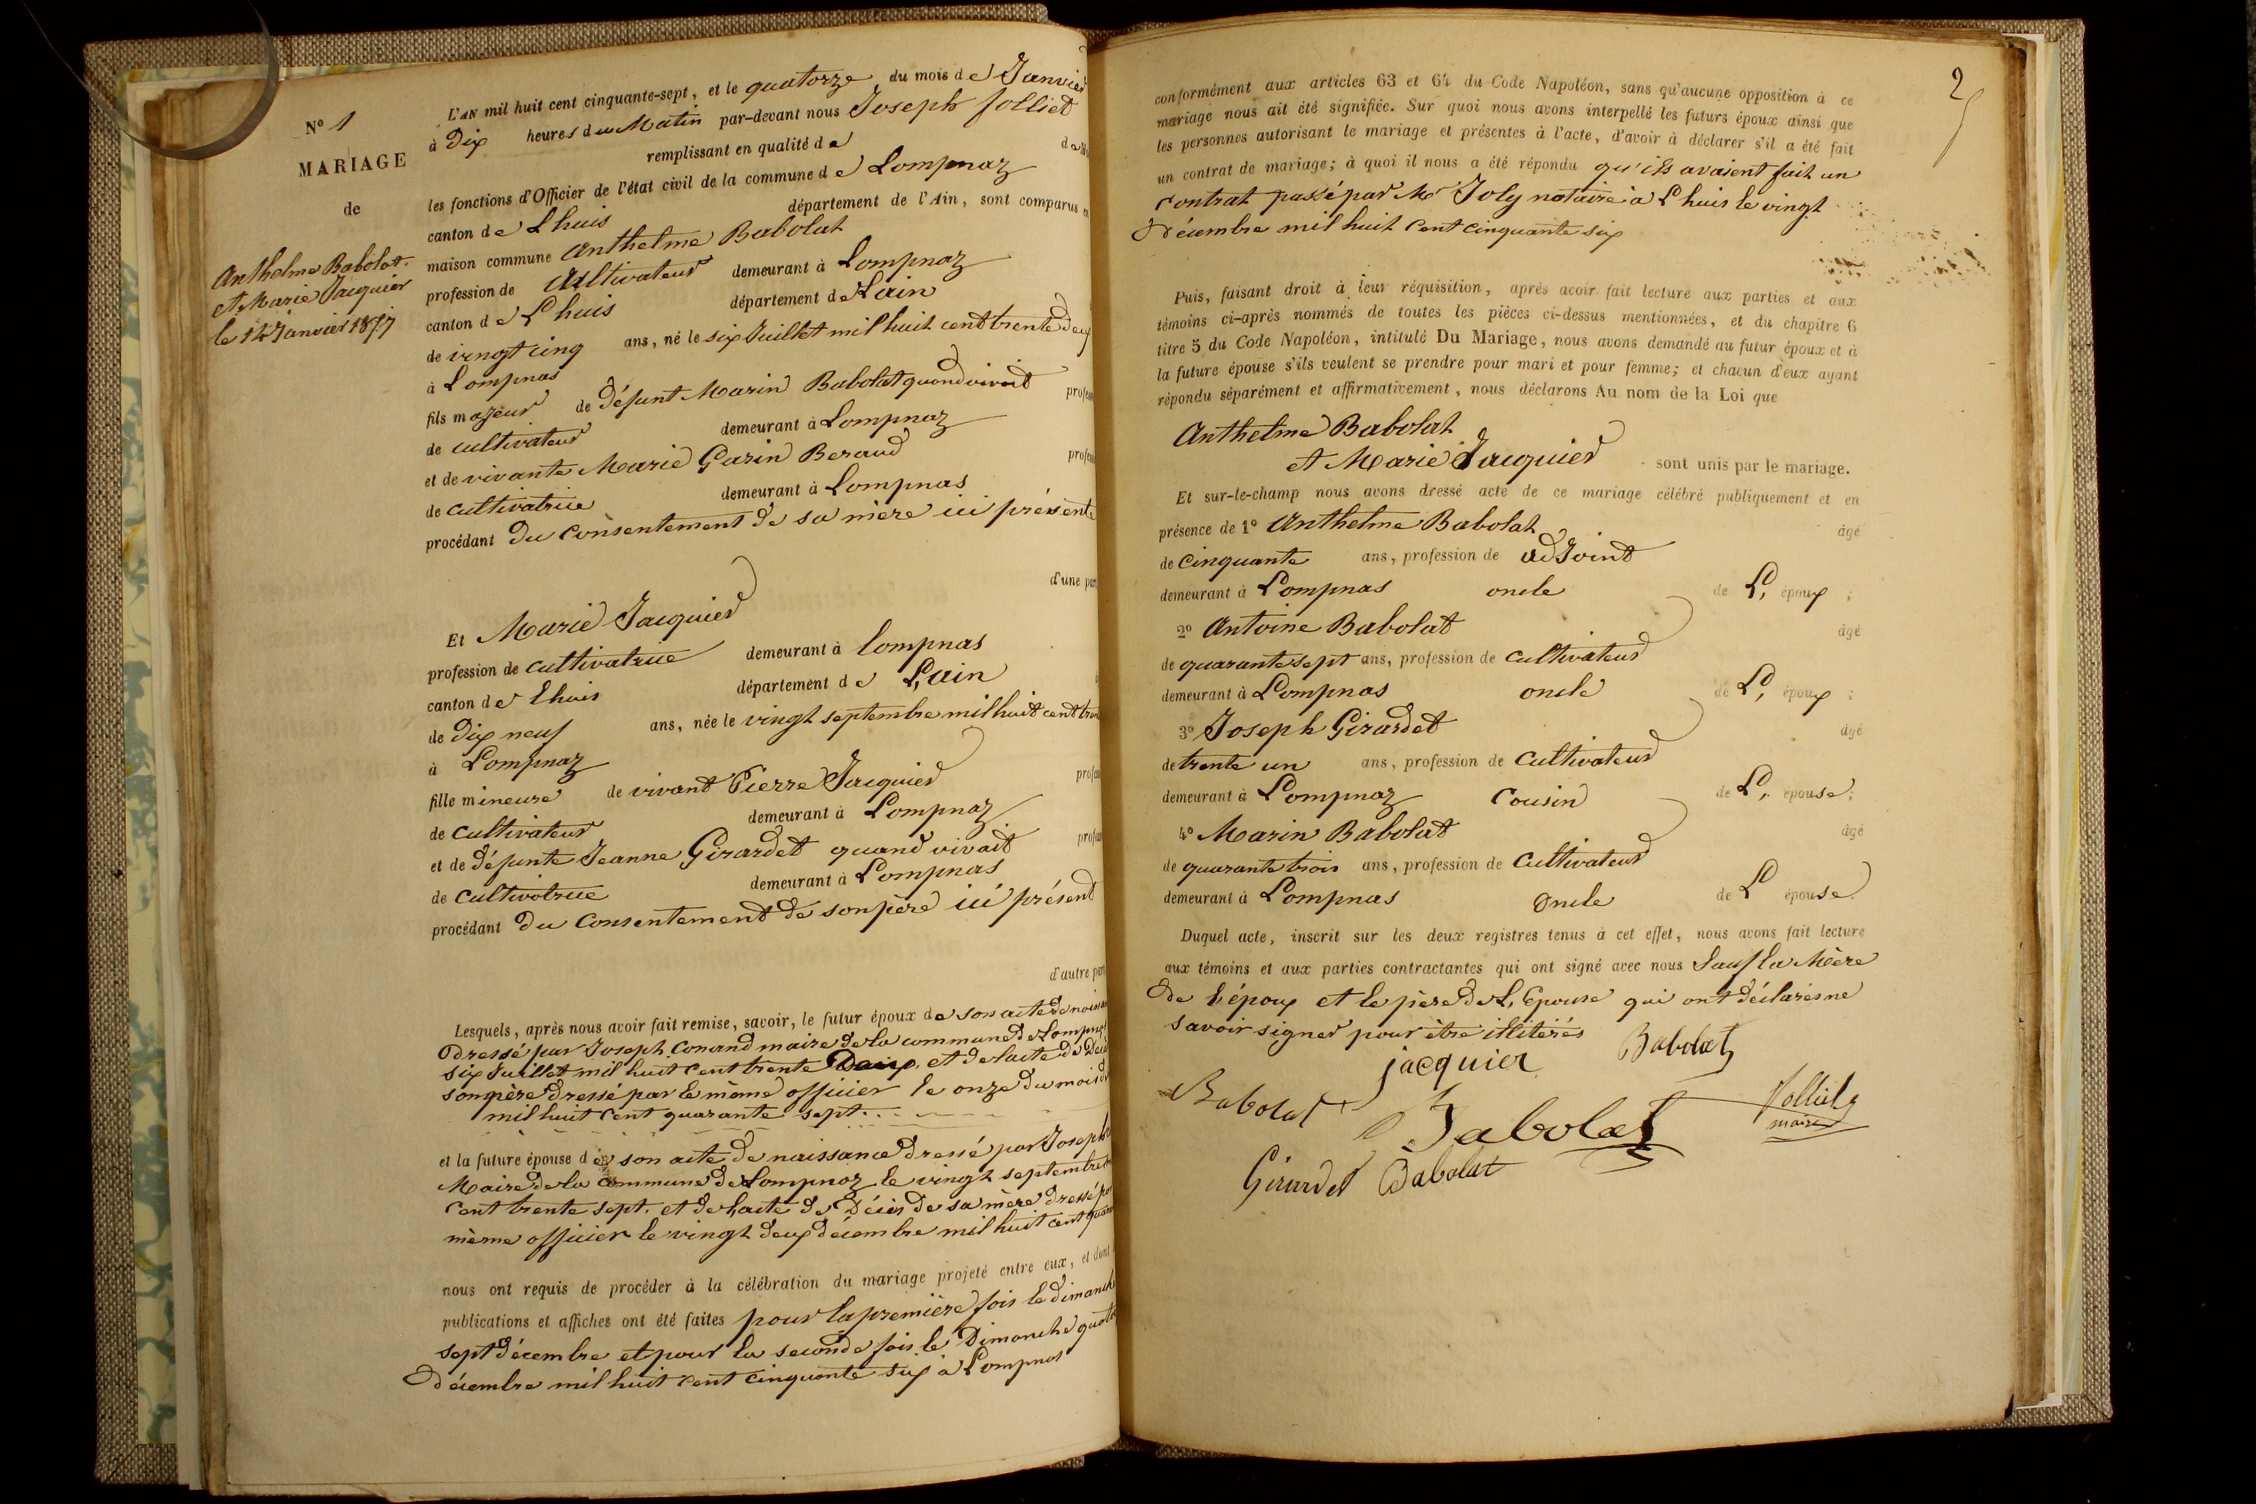 N° 1
MARIAGE
de
Anthelme Babolat
et Marie Jacquier
le 14 Janvier 1857
L'AN mil huit cent cinquante-sept, et le quatorze du mois de Janvier
à Dix heures du Matin par-devant nous Joseph Jolliet
remplissant en qualité de
les fonctions d'Officier de l'état civil de la commune de Lompnaz
canton de Lhuis département de l'Ain, sont comparus en
maison commune Anthelme Babolat
profession de Cultivateur demeurant à Lompnaz
canton de Lhuis département de Lain
de vingt cinq ans, né le six Juillet mil huit cent trente deux
à Lompnas
fils majeur de défunt Marin Babolat quand vivait
de cultivateur demeurant à Lompnaz
et de vivante Marie Garin Beraud
de cultivatrice demeurant à Lompnas
procédant du consentement de sa mère ici présente
d'une part
Et Marie Jacquier
profession de cultivatrice demeurant à lompnas
canton de Lhuis département de L,ain
de dix neuf ans, née le vingt septembre mil huit cent
à Lompnaz
fille mineure de vivant Pierre Jacquier
de cultivateur demeurant à Lompnaz
et de défunte Jeanne Girardet quand vivait
de cultivatrice demeurant à Lompnas
procédant du Consentement de son père ici présent
d'autre part
Lesquels, après nous avoir fait remise, savoir, le futur époux de son acte de
dressé par Joseph Conand maire de la commune de
six Juillet mil huit cent trente Deux, et de lacte de
son père dressé par le même officier le onze du mois
mil huit cent quarante sept
et la future épouse de son acte de naissance dressé par Joseph
Maire de la commune de Lompnaz le vingt septembre
cent trente sept, et de Lacte de Décès de sa mère dressé
même officier le vingt deux décembre mil huit cent
nous ont requis de procéder à la célébration du mariage projeté entre eux, et dont
publications et affiches ont été faites pour la première fois le dimanche
sept décembre et pour la seconde fois le Dimanche
décembre mil huit cent cinquante six à Lompnas
2
conformément aux articles 63 et 64 du Code Napoléon, sans qu'aucune opposition à ce
mariage nous ait été signifiée. Sur quoi nous avons interpellé les futurs époux ainsi que
les personnes autorisant le mariage et présentes à l'acte, d'avoir à déclarer s'il a été fait
un contrat de mariage; à quoi il nous a été répondu qu'ils avaient fait un
contrat passé par Me Joly notaire à Lhuis le vingt
décembre mil huit cent cinquante six
Puis, faisant droit à leur réquisition, après avoir fait lecture aux parties et aux
témoins ci-après nommés de toutes les pièces ci-dessus mentionnées, et du chapitre 6
titre 5 du Code Napoléon, intitulé Du Mariage, nous avons demandé au futur époux et à
la future épouse s'ils veulent se prendre pour mari et pour femme; et chacun d'eux ayant
répondu séparément et affirmativement, nous déclarons Au nom de la Loi que
Anthelme Babolat
et Marie Jacquier sont unis par le mariage.
Et sur-le-champ nous avons dressé acte de ce mariage célébré publiquement et en
présence de 1° Anthelme Babolat âgé
de cinquante ans, profession de adJoint
demeurant à Lompnas oncle de L, époux ;
2° Antoine Babolat âgé
de quarante sept ans, profession de cultivateur
demeurant à Lompnas oncle de L, époux ;
3° Joseph Girardet âgé
de trente un ans, profession de Cultivateur
demeurant à Lompnaz Cousin de L, épouse;
4° Marin Babolat âgé
de quarante trois ans, profession de Cultivateur
demeurant à Lompnas Oncle de L épouse
Duquel acte, inscrit sur les deux registres tenus à cet effet, nous avons fait lecture
aux témoins et aux parties contractantes qui ont signé avec nous Sauf la Mère
de l'époux et le père de L, Epouse qui ont déclarés ne
savoir signer pour être illitérés
jacquier Babolat
Babolat Babolat Jolliet
maire
Girardet Babolat